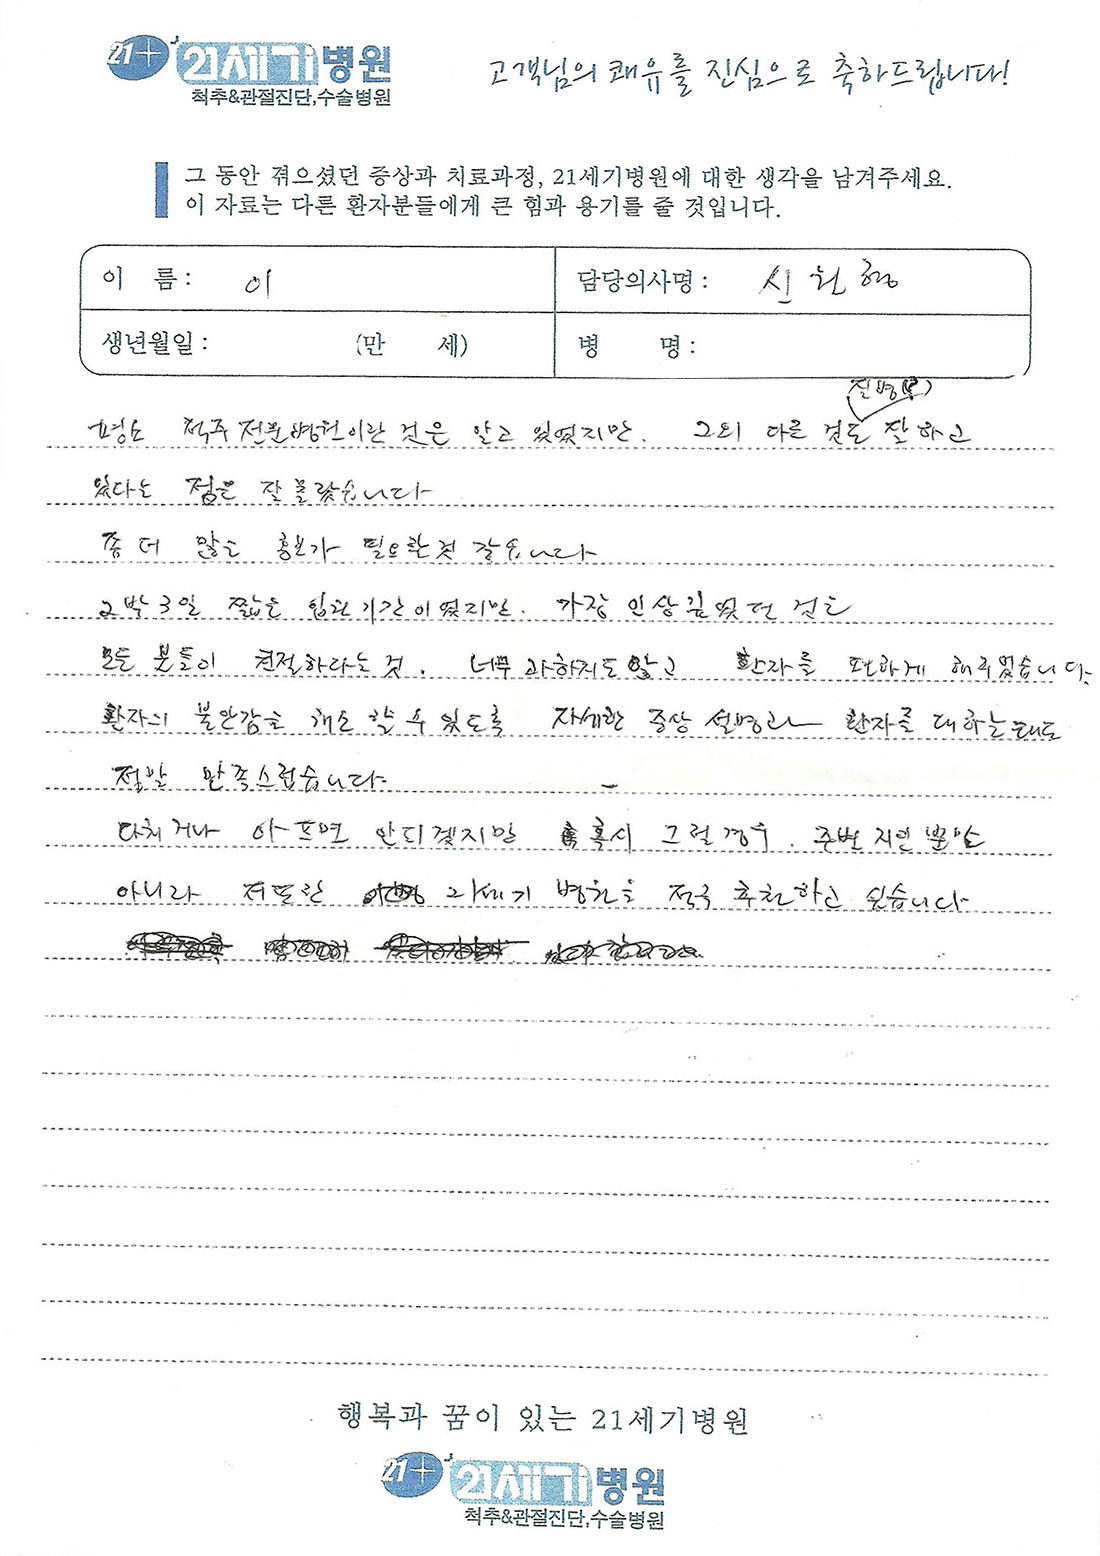 21+ 21세기병원
척추&관절진단,수술병원
고객님의 쾌유를 진심으로 축하드립니다!
그 동안 겪으셨던 증상과 치료과정, 21세기병원에 대한 생각을 남겨주세요.
이 자료는 다른 환자분들에게 큰 힘과 용기를 줄 것입니다.
이 름 : 이
담당의사명 : 신원형
생년월일 : (만 세)
병 명 :
질병(?)
평소 척추전문병원이란 것은 알고 있었지만. 그외 다른 것도 잘하고
있다는 점은 잘 몰랐습니다
좀 더 많은 홍보가 필요한것 같습니다
2박 3일 짧은 입원기간이었지만. 가장 인상깊었던 것은
모든 분들이 친절하다는 것. 너무 과하지도 않고 환자를 편하게 해주었습니다.
환자의 불안감을 해소 할 수 있도록 자세한 증상 설명과 환자를 대하는 태도
정말 만족스럽습니다.
다치거나 아프면 안되겠지만 혹시 그럴경우. 주변 지인 뿐만
아니라 저또한 21세기 병원을 적극 추천하고 싶습니다
행복과 꿈이 있는 21세기병원
21+ 21세기병원
척추&관절진단,수술병원